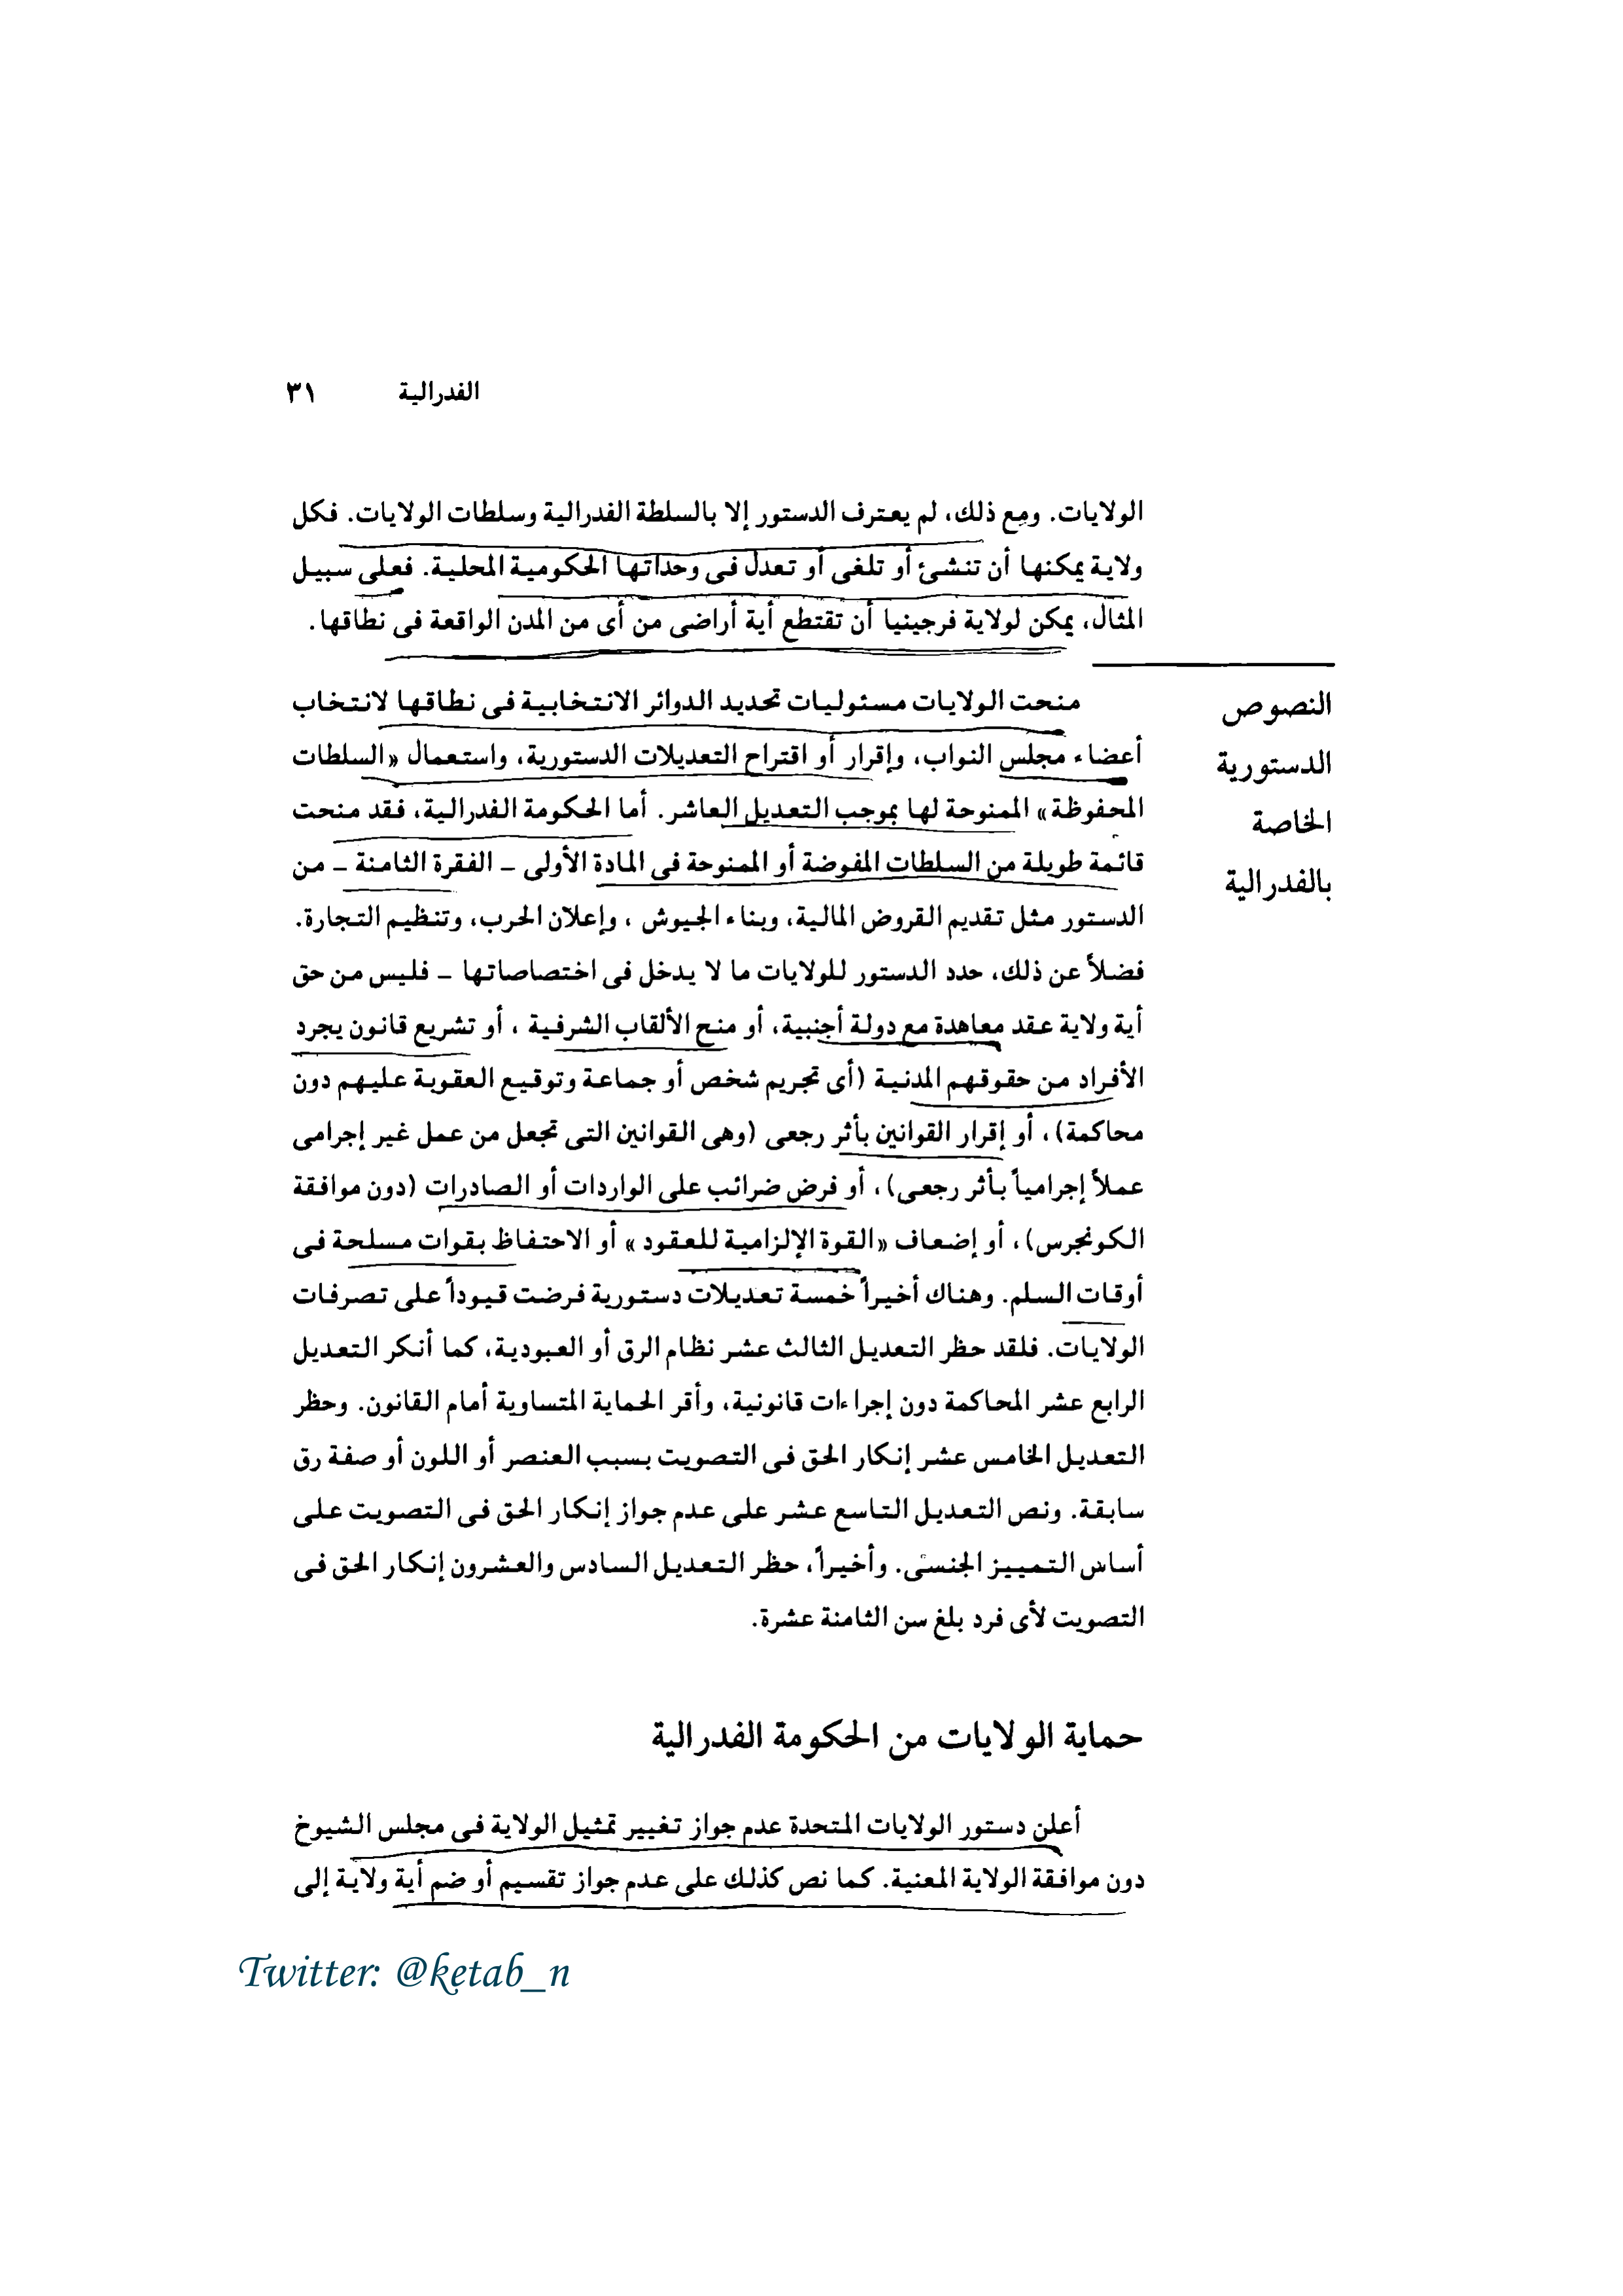 الفدرالية ٣١
الولايات. ومع ذلك، لم يعترف الدستور إلا بالسلطة الفدرالية وسلطات الولايات. فكل
ولاية يمكنها أن تنشئ أو تلغى أو تعدل فى وحداتها الحكومية المحلية. فعلى سبيل
المثال، يمكن لولاية فرجينيا أن تقتطع أية أراضى من أى من المدن الواقعة فى نطاقها.
النصوص
الدستورية
الخاصة
بالفدرالية
منحت الولايات مسئوليات تحديد الدوائر الانتخابية فى نطاقها لانتخاب
أعضاء مجلس النواب، وإقرار أو اقتراح التعديلات الدستورية، واستعمال «السلطات
المحفوظة» الممنوحة لها بموجب التعديل العاشر. أما الحكومة الفدرالية، فقد منحت
قائمة طويلة من السلطات المفوضة أو الممنوحة فى المادة الأولى – الفقرة الثامنة – من
الدستور مثل تقديم القروض المالية، وبناء الجيوش ، وإعلان الحرب، وتنظيم التجارة.
فضلاً عن ذلك، حدد الدستور للولايات ما لا يدخل فى اختصاصاتها – فليس من حق
أية ولاية عقد معاهدة مع دولة أجنبية، أو منح الألقاب الشرفية ، أو تشريع قانون يجرد
الأفراد من حقوقهم المدنية (أى تجريم شخص أو جماعة وتوقيع العقوبة عليهم دون
محاكمة) ، أو إقرار القوانين بأثر رجعى (وهى القوانين التى تجعل من عمل غير إجرامى
عملاً إجرامياً بأثر رجعى) ، أو فرض ضرائب على الواردات أو الصادرات (دون موافقة
الكونجرس) ، أو إضعاف «القوة الإلزامية للعقود » أو الاحتفاظ بقوات مسلحة فى
أوقات السلم. وهناك أخيراً خمسة تعديلات دستورية فرضت قيوداً على تصرفات
الولايات. فلقد حظر التعديل الثالث عشر نظام الرق أو العبودية، كما أنكر التعديل
الرابع عشر المحاكمة دون إجراءات قانونية، وأقر الحماية المتساوية أمام القانون. وحظر
التعديل الخامس عشر إنكار الحق فى التصويت بسبب العنصر أو اللون أو صفة رق
سابقة. ونص التعديل التاسع عشر على عدم جواز إنكار الحق فى التصويت على
أساس التمييز الجنسى. وأخيراً، حظر التعديل السادس والعشرون إنكار الحق فى
التصويت لأى فرد بلغ سن الثامنة عشرة.
حماية الولايات من الحكومة الفدرالية
أعلن دستور الولايات المتحدة عدم جواز تغيير تمثيل الولاية فى مجلس الشيوخ
دون موافقة الولاية المعنية. كما نص كذلك على عدم جواز تقسيم أو ضم أية ولاية إلى
Twitter: @ketab_n